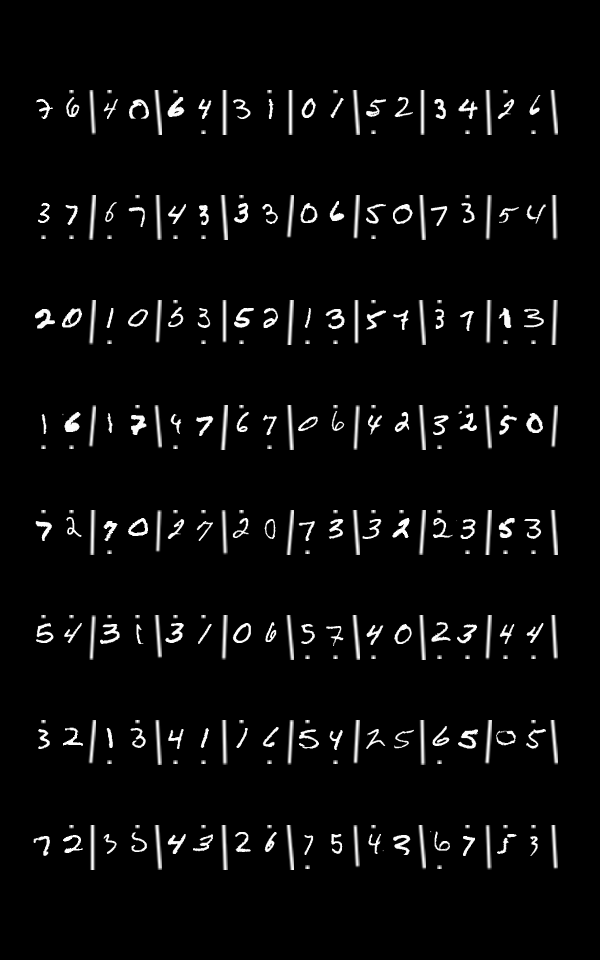 7 6 | 4 0 | 6 4 | 3 1 | 0 1 | 5 2 | 3 4 | 2 6 |
3 7 | 6 7 | 4 3 | 3 3 | 0 6 | 5 0 | 7 3 | 5 4 |
2 0 | 1 0 | 5 3 | 5 2 | 1 3 | 5 7 | 3 7 | 1 3 |
1 6 | 1 7 | 4 7 | 6 7 | 0 6 | 4 2 | 3 2 | 5 0 |
7 2 | 7 0 | 2 7 | 2 0 | 7 3 | 3 2 | 2 3 | 5 3 |
5 4 | 3 1 | 3 1 | 0 6 | 5 7 | 4 0 | 2 3 | 4 4 |
3 2 | 1 3 | 4 1 | 1 6 | 5 4 | 2 5 | 6 5 | 0 5 |
7 2 | 3 5 | 4 3 | 2 6 | 7 5 | 4 3 | 6 7 | 5 3 |